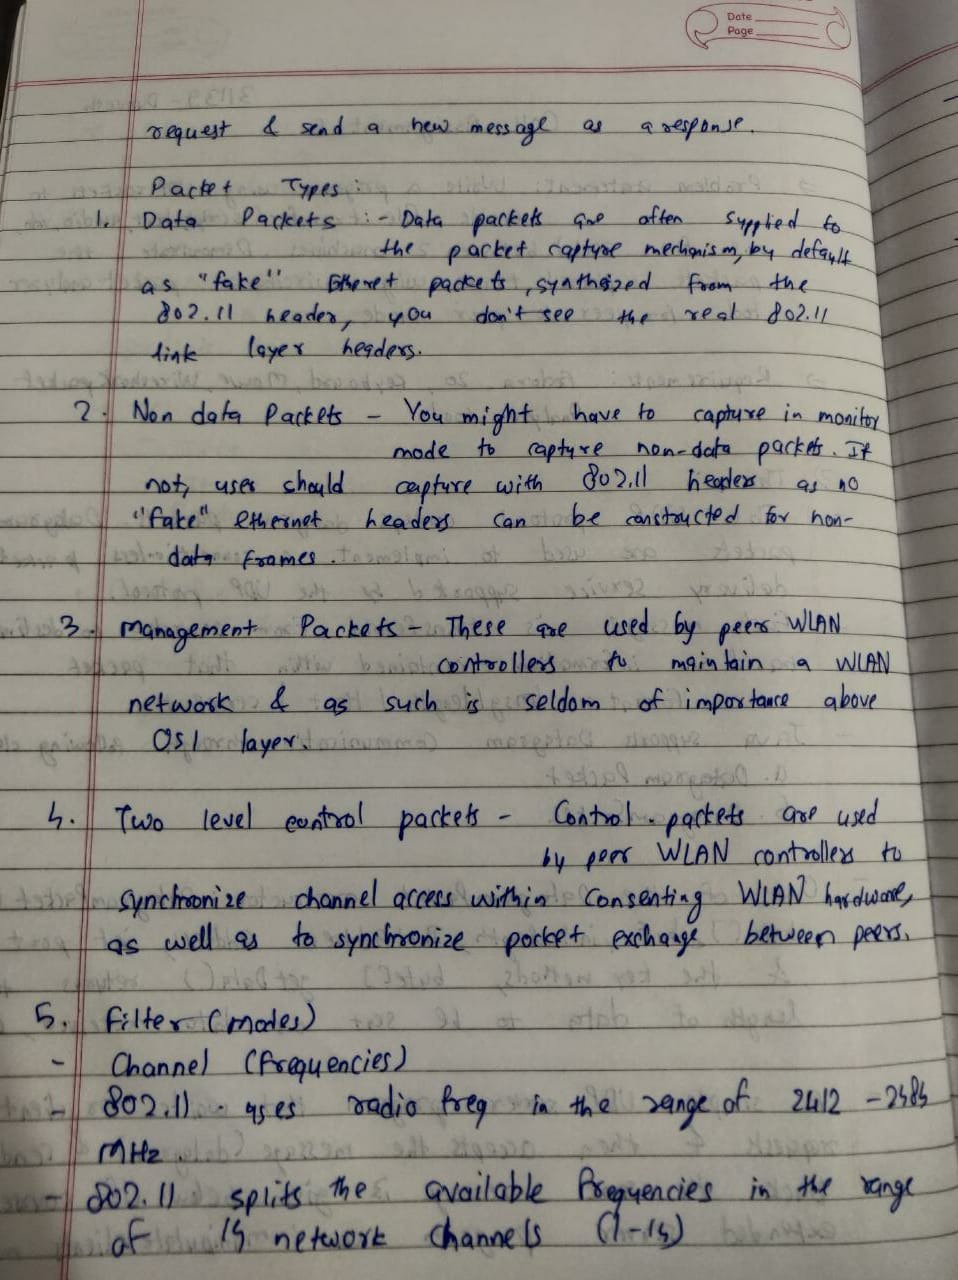 Date
Page
request & send a new message as a response.
Packet Types :
1. Data Packets :- Data packets are often supplied to
the packet capture mechanism, by default
as "fake" Ethernet packets, synthesized from the
802.11 header, you don't see the real 802.11
link layer headers.
2. Non data Packets - You might have to capture in monitor
mode to capture non-data packets. If
not, user should capture with 802.11 headers as no
"fake" ethernet headers can be constructed for non-
data frames.
3. Management Packets - These are used by peer WLAN
controllers to maintain a WLAN
network & as such is seldom of importance above
OSI layer.
4. Two level control packets - Control packets are used
by peer WLAN controllers to
synchronize channel access within consenting WLAN hardware,
as well as to synchronize packet exchange between peers.
5. Filter (modes)
- Channel (Frequencies)
- 802.11 uses radio freq in the range of 2412 - 2484
MHz.
- 802.11 splits the available frequencies in the range
of 14 network channels (1-14)